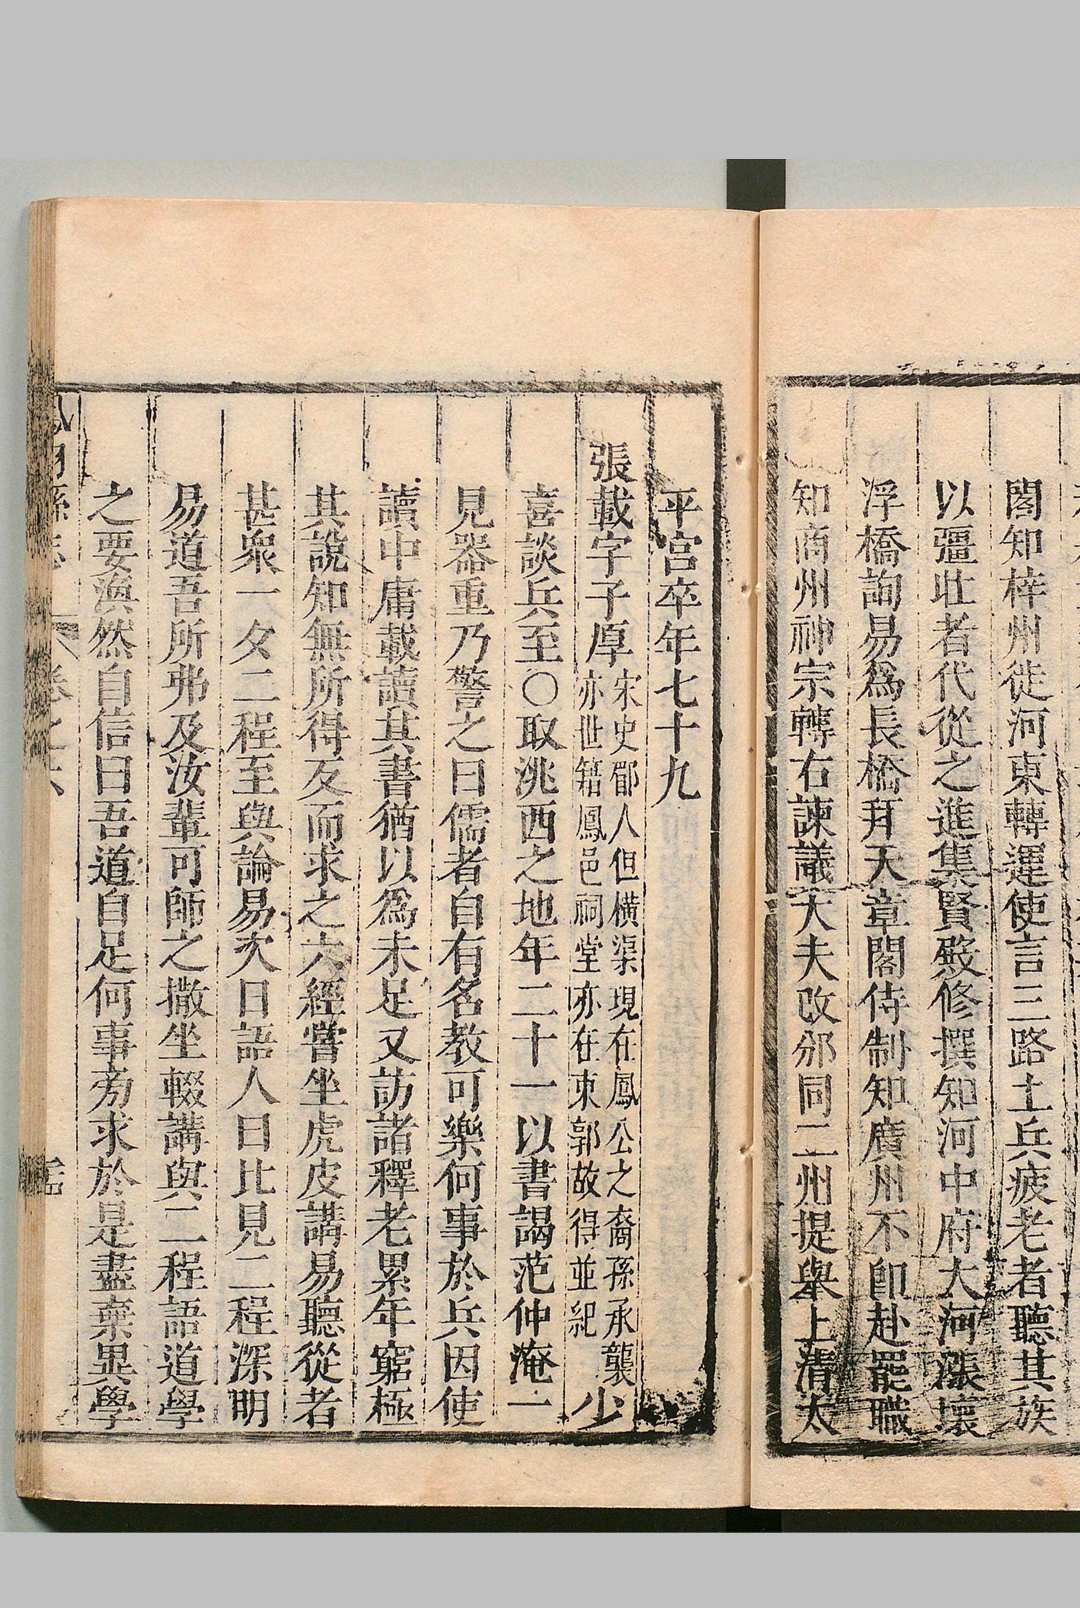 閣知梓州徙河東轉運使言三路土兵疲老者聽其族
以彊壯者代從之進集賢殿修撰知河中府大河漲壞
浮橋詢易爲長橋拜天章閣侍制知廣州不卽赴罷職
知商州神宗轉右諫議大夫改邠同二州提舉上清太
平宮卒年七十九
張載字子厚宋史郿人但橫渠現在鳳公之裔孫承襲
亦世籍鳳邑祠堂亦在東郭故得並紀少
喜談兵至〇取洮西之地年二十一以書謁范仲淹一
見器重乃警之曰儒者自有名教可樂何事於兵因使
讀中庸載讀其書猶以爲未足又訪諸釋老累年窮極
其說知無所得反而求之六經嘗坐虎皮講易聽從者
甚衆一夕二程至與論易次日語人曰比見二程深明
易道吾所弗及汝輩可師之撤坐輟講與二程語道學
之要渙然自信曰吾道自足何事旁求於是盡棄異學
縣志 卷之六